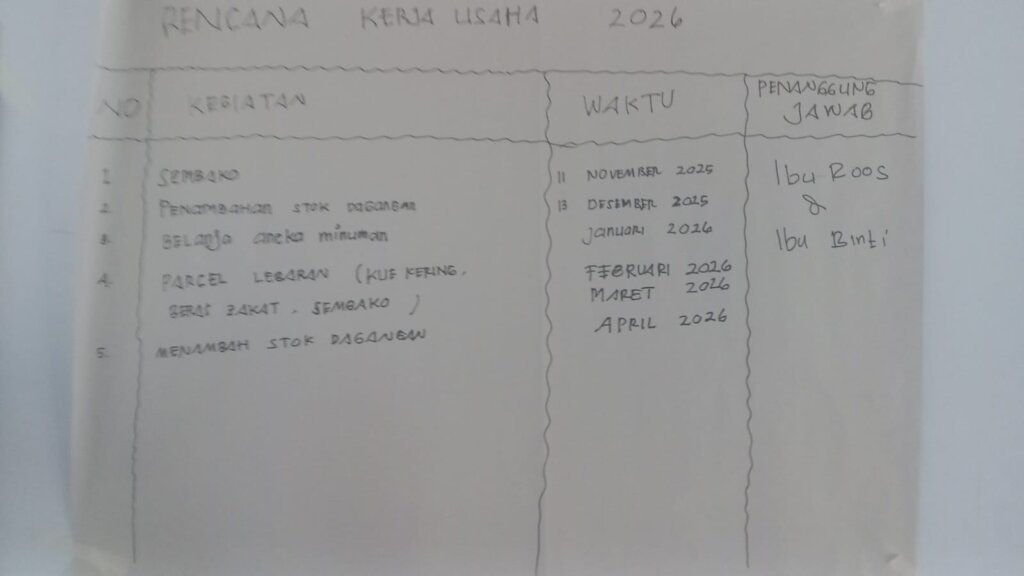 RENCANA KERJA USAHA 2026
NO KEGIATAN WAKTU PENANGGUNG JAWAB
1. SEMBAKO 11 NOVEMBER 2025 Ibu Roos
2. PENAMBAHAN STOK DAGANGAN 13 DESEMBER 2025 &
3. BELANJA aneka minuman JANUARI 2026 Ibu Binti
4. PARCEL LEBARAN (KUE KERING, FEBRUARI 2026
BERAS ZAKAT, SEMBAKO) MARET 2026
APRIL 2026
5. MENAMBAH STOK DAGANGAN